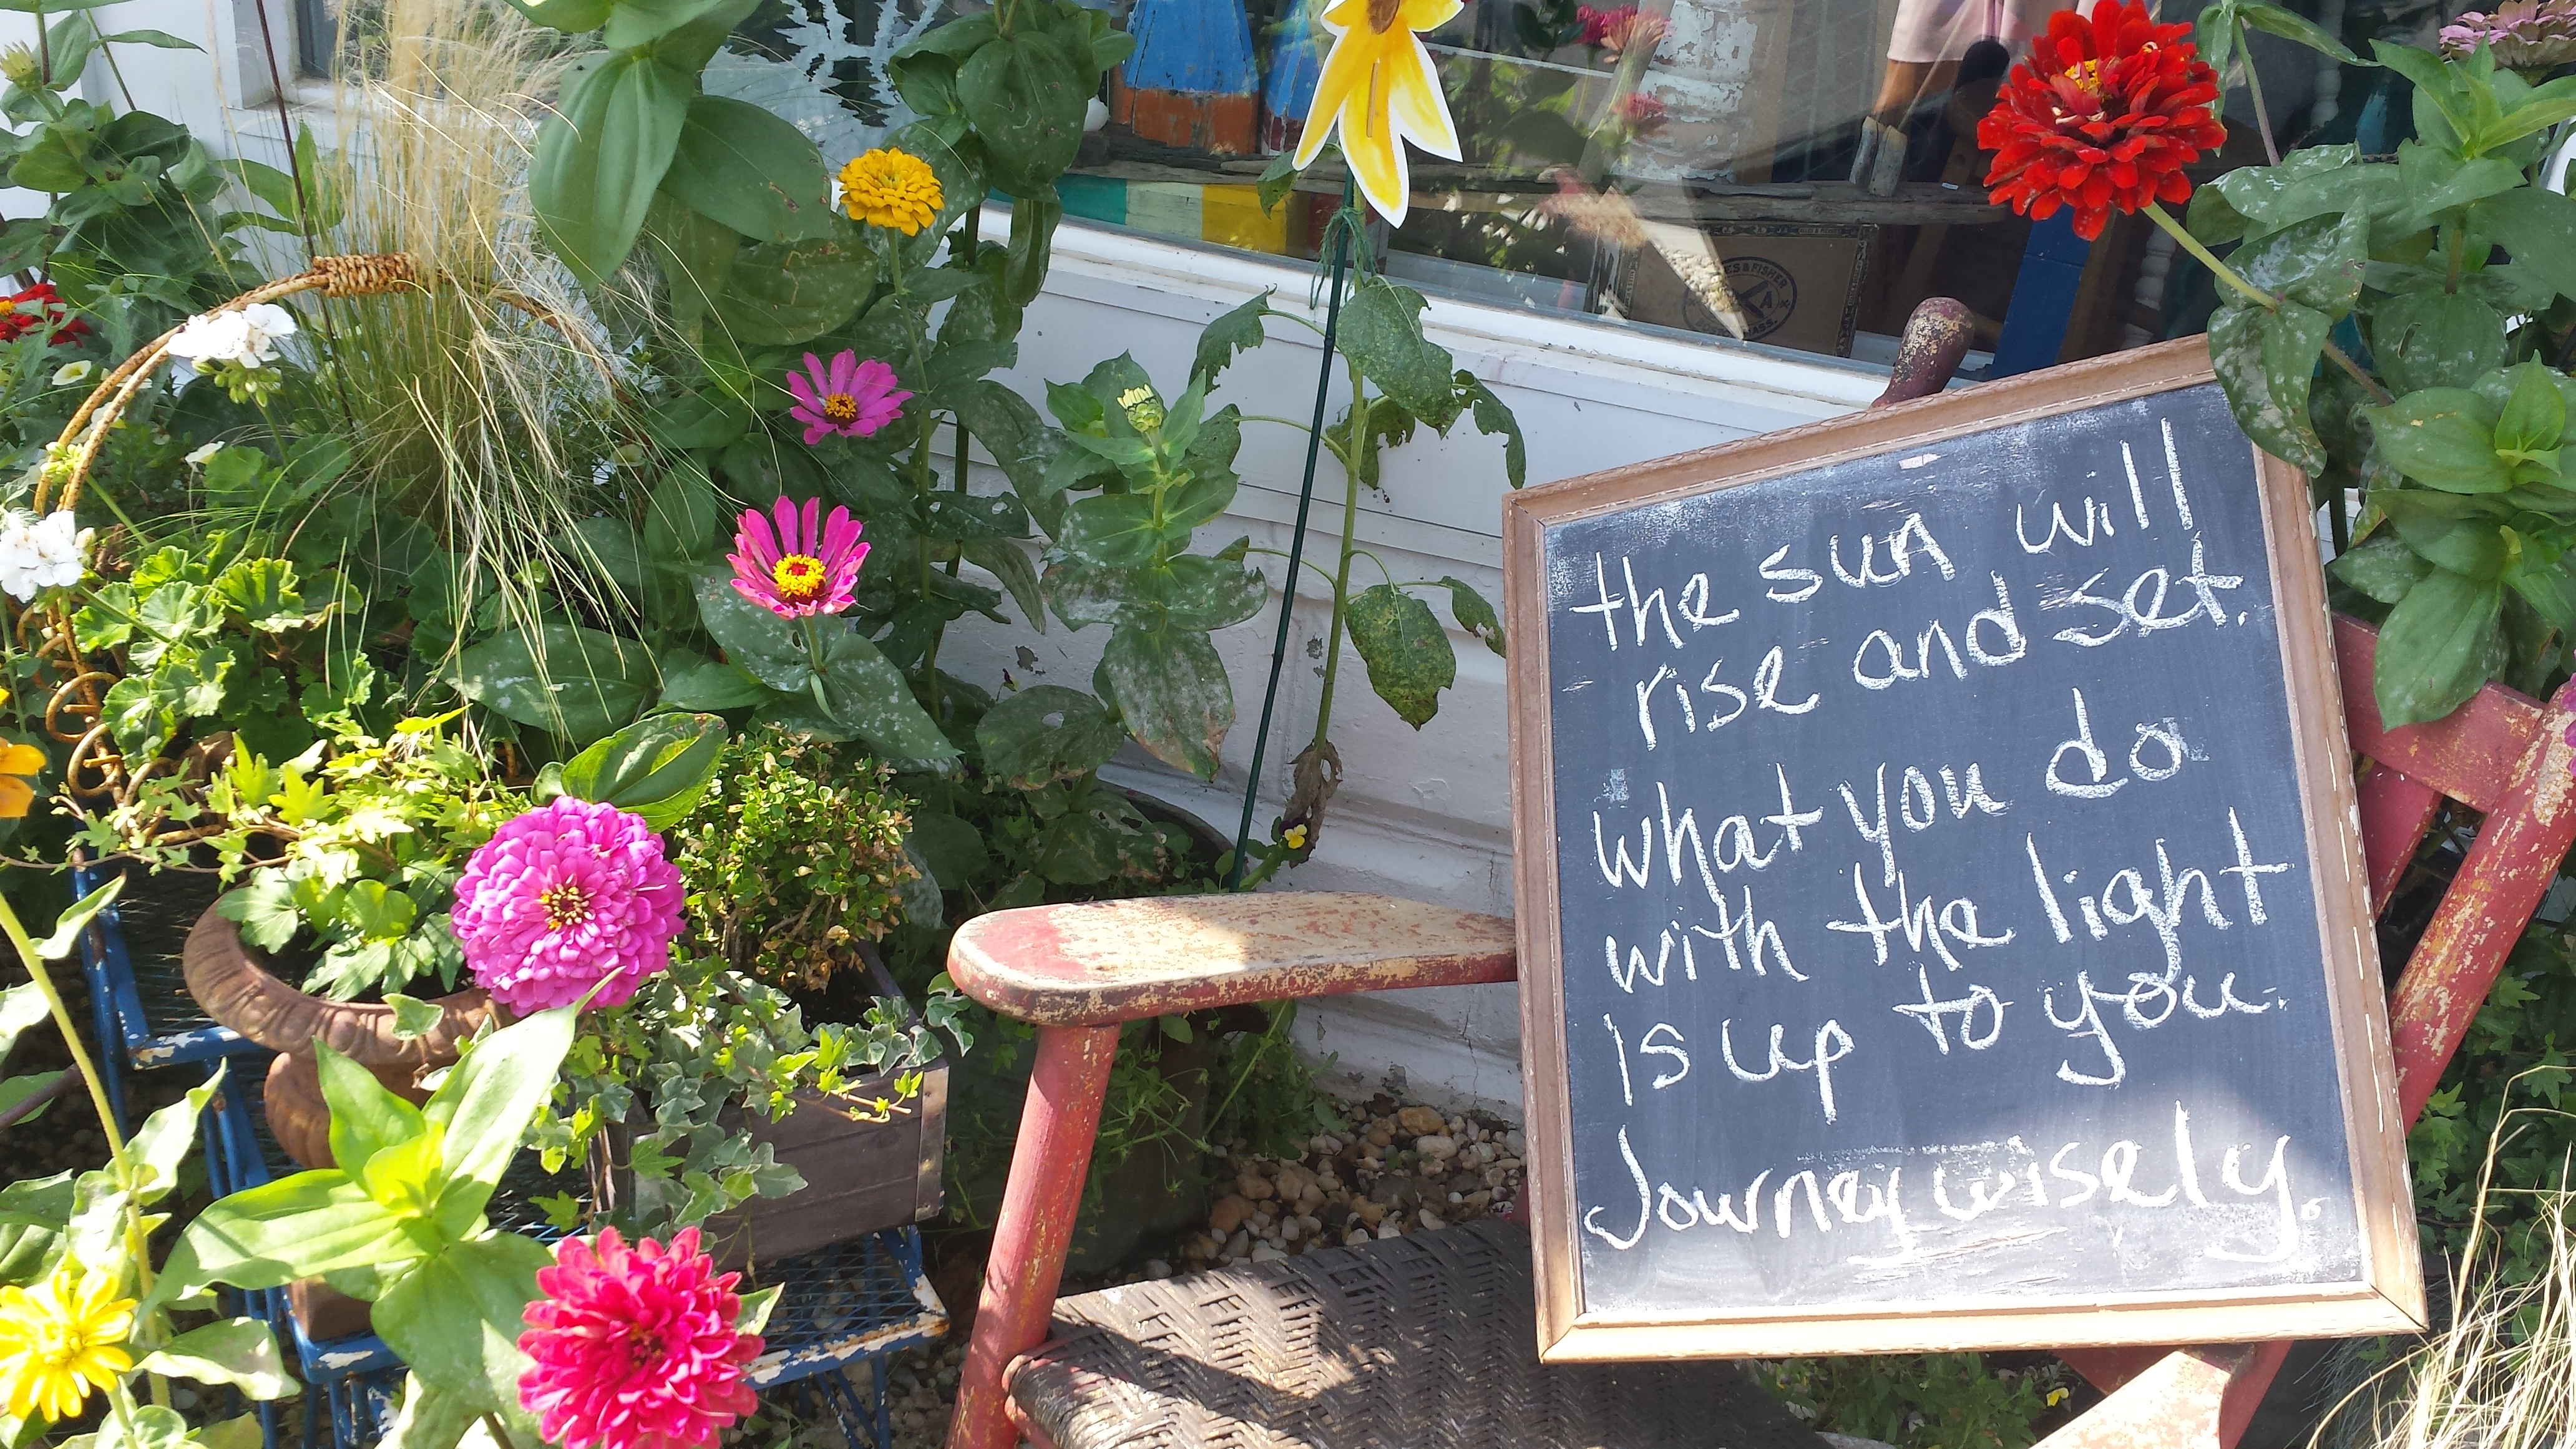 ES & FISHER
A
MASS.
the sun will
rise and set.
what you do
with the light
is up to you.
Journey wisely.